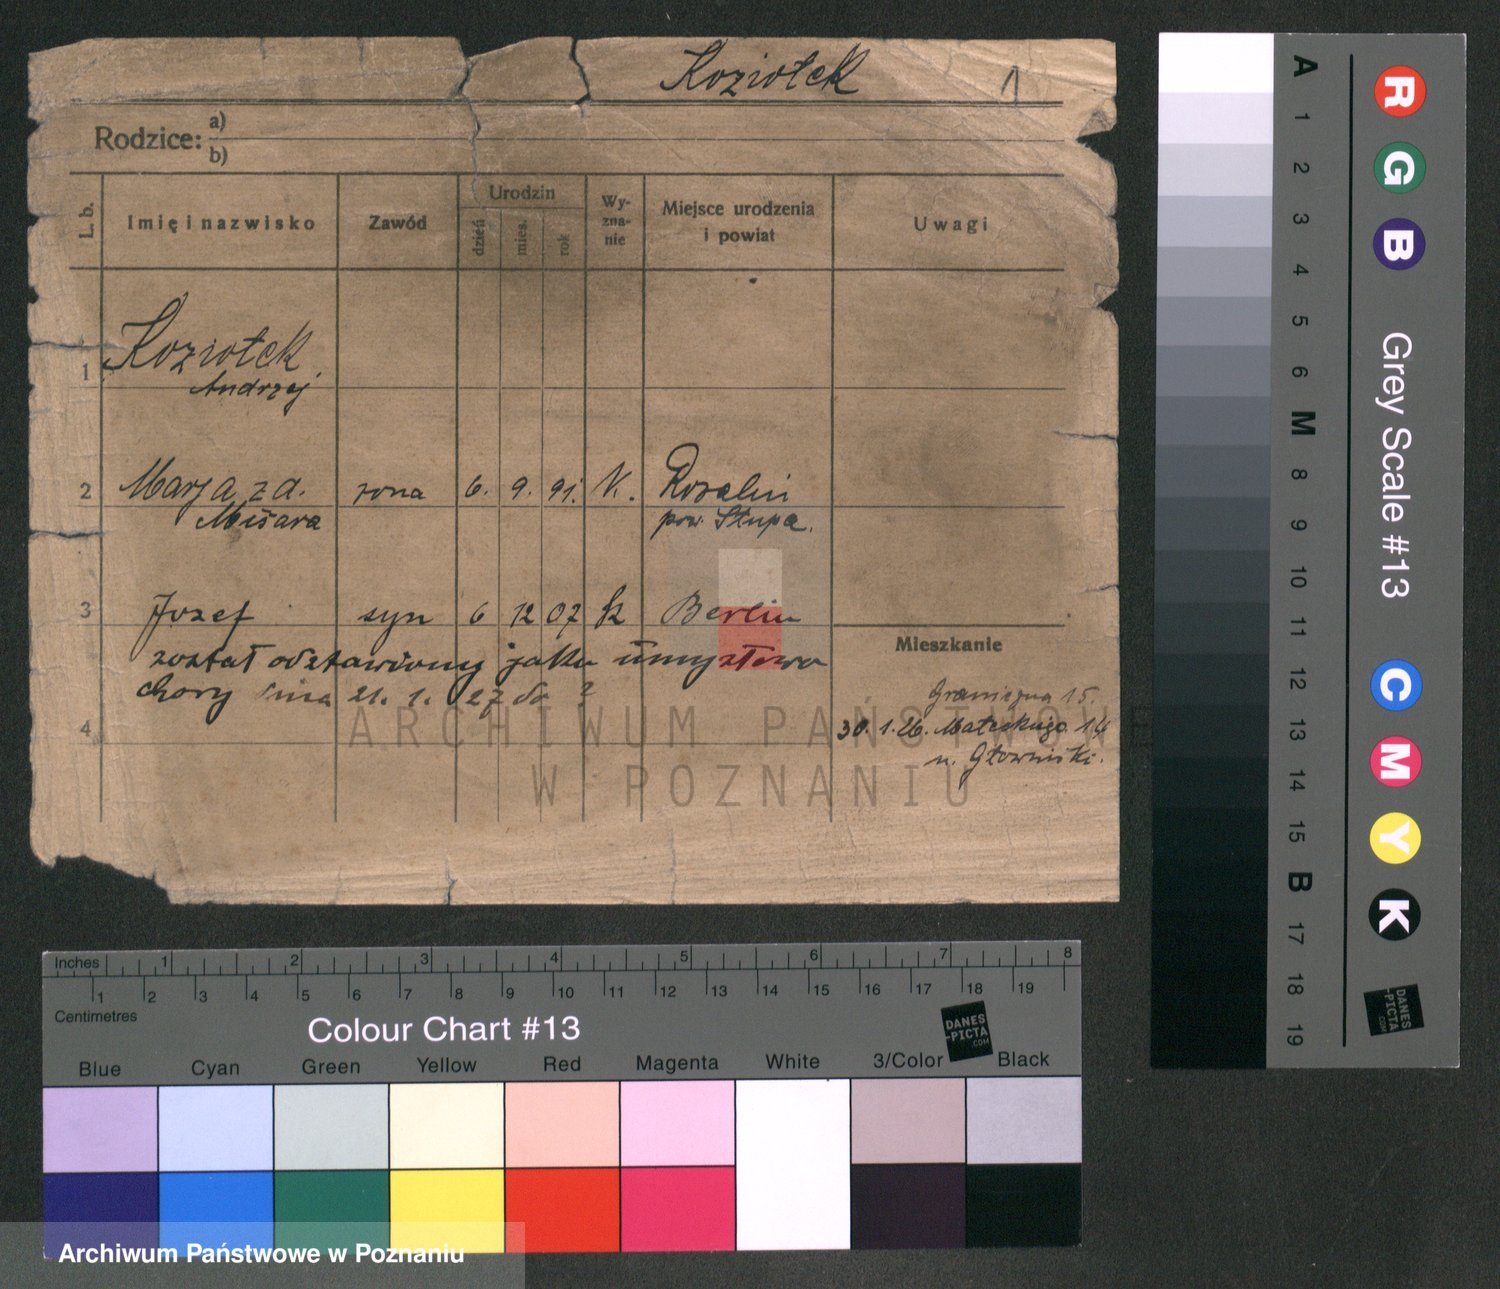 Koziołek 1
Rodzice: a)
b)
L. b. Imię i nazwisko Zawód Urodzin dzień mies. rok Wy-zna-nie Miejsce urodzenia i powiat Uwagi
1 Koziołek
Andrzej
2 Marja z d. żona 6. 9. 91. K. Rozalin
Misara pow. Słupca.
3 Józef syn 6 12 07 k Berlin
Mieszkanie
został odstawiony jako umysłowo
chory dnia 21. 1. 27 do ?
Graniczna 15.
4 30. 1. 26. Matejkugo 14
u. Głowiński.
ARCHIWUM PAŃSTWOWE
W POZNANIU
A 1 2 3 4 5 6 M 8 9 10 11 12 13 14 15 B 17 18 19
R G B
Grey Scale #13
C M Y K
DANES
-PICTA
.COM
Inches 1 2 3 4 5 6 7 8
1 2 3 4 5 6 7 8 9 10 11 12 13 14 15 16 17 18 19
Centimetres
Colour Chart #13
DANES
-PICTA
.COM
Blue Cyan Green Yellow Red Magenta White 3/Color Black
Archiwum Państwowe w Poznaniu